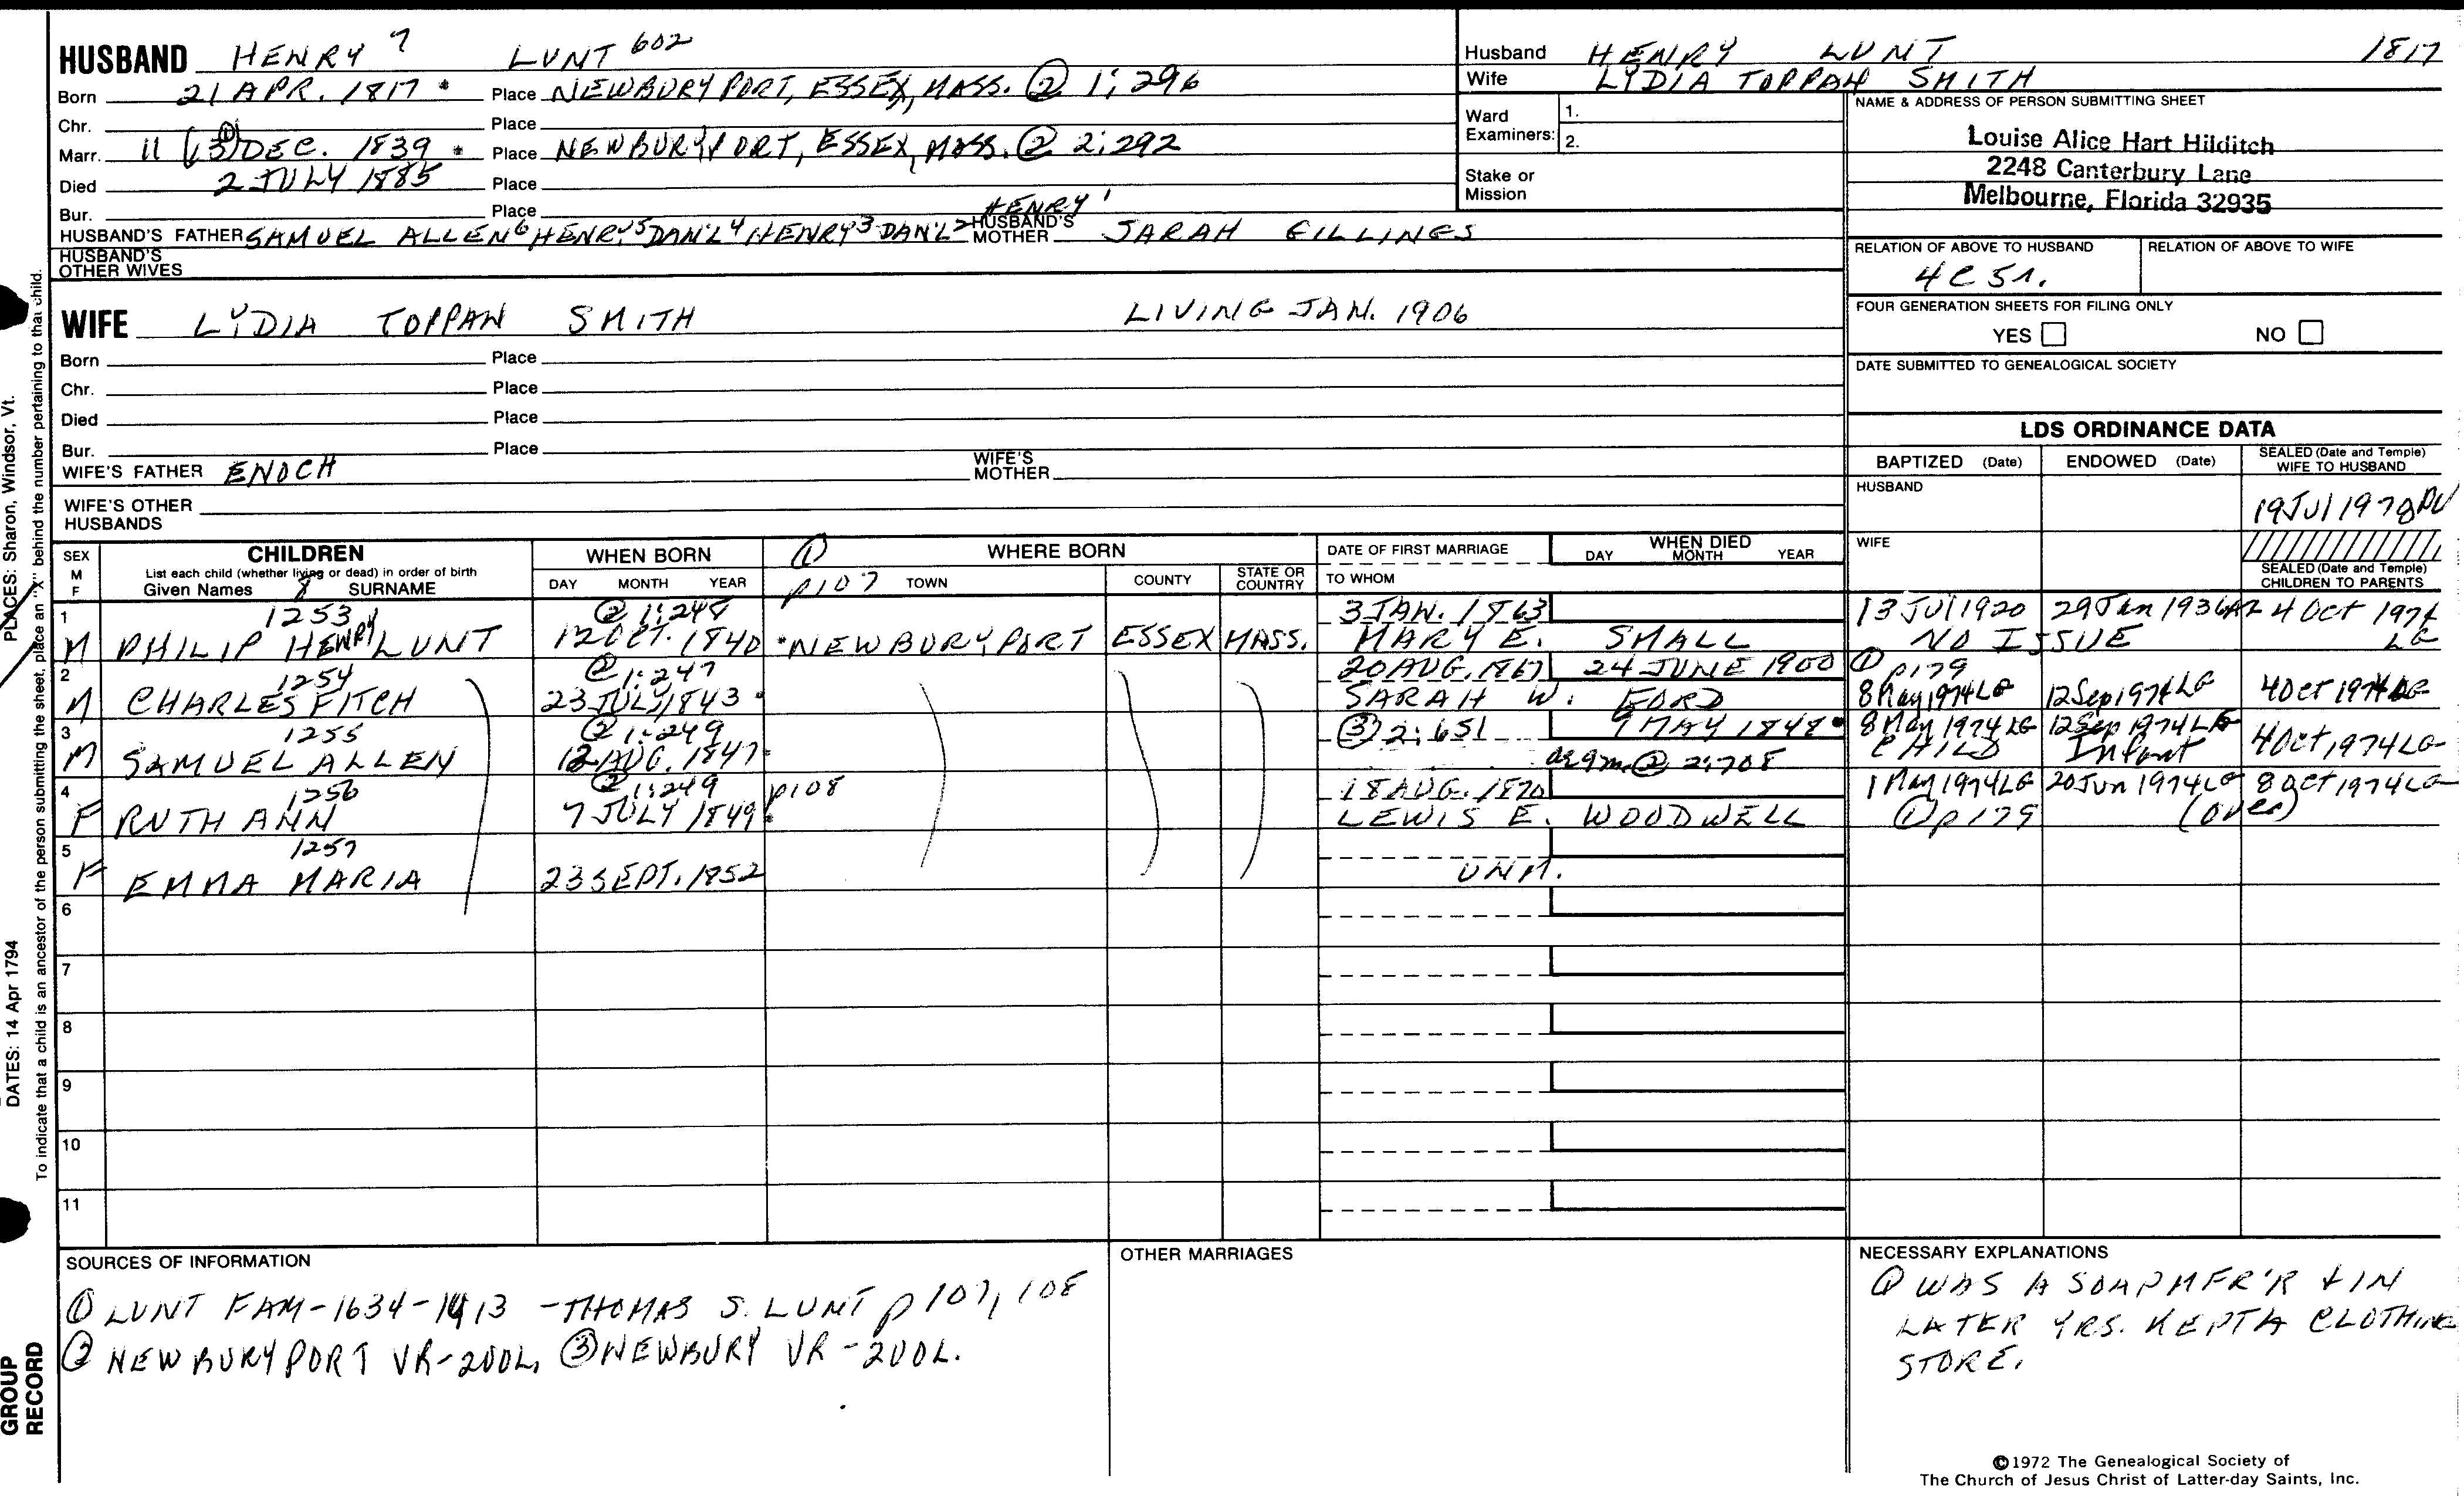 HUSBAND HENRY 7 LUNT 602
Born 21 APR. 1817 * Place NEWBURYPORT, ESSEX, MASS. ② 1:296
Chr. Place
Marr. 11 (①3) DEC. 1839 * Place NEWBURYPORT, ESSEX, MASS. ② 2:292
Died 2 JULY 1885 Place
Bur. Place
HUSBAND'S FATHER SAMUEL ALLEN6 HENRY5 DAN'L4 HENRY3 DAN'L2 HENRY1 HUSBAND'S MOTHER SARAH GILLINGS
HUSBAND'S OTHER WIVES
Husband HENRY LUNT 1817
Wife LYDIA TOPPAN SMITH
Ward Examiners: 1.
2.
Stake or Mission
NAME & ADDRESS OF PERSON SUBMITTING SHEET
Louise Alice Hart Hilditch
2248 Canterbury Lane
Melbourne, Florida 32935
RELATION OF ABOVE TO HUSBAND RELATION OF ABOVE TO WIFE
4C 5r.
FOUR GENERATION SHEETS FOR FILING ONLY
YES NO
DATE SUBMITTED TO GENEALOGICAL SOCIETY
WIFE LYDIA TOPPAN SMITH LIVING JAN. 1906
Born Place
Chr. Place
Died Place
Bur. Place
WIFE'S FATHER ENOCH WIFE'S MOTHER
WIFE'S OTHER HUSBANDS
LDS ORDINANCE DATA
BAPTIZED (Date) ENDOWED (Date) SEALED (Date and Temple) WIFE TO HUSBAND
HUSBAND 19 Jul 1978 PV
WIFE
SEALED (Date and Temple) CHILDREN TO PARENTS
SEX M F CHILDREN WHEN BORN ① WHERE BORN DATE OF FIRST MARRIAGE WHEN DIED DAY MONTH YEAR
List each child (whether living or dead) in order of birth
Given Names 8 SURNAME DAY MONTH YEAR p107 TOWN COUNTY STATE OR COUNTRY TO WHOM
1 1253 ② 1:248 3 JAN. 1863 13 Jul 1920 29 Jan 1936 AZ 4 Oct 1974
M PHILIP HENRY LUNT 12 OCT. 1840 * NEWBURYPORT ESSEX MASS. MARY E. SMALL NO ISSUE LG
2 1254 ② 1:247 20 AUG. 1867 24 JUNE 1900 ① p179
M CHARLES FITCH 23 JULY 1843 * SARAH W. FORD 8 May 1974 LG 12 Sep 1974 LG 4 Oct 1974 LG
3 1255 ② 1:249 ③ 2:651 9 MAY 1848 * 8 May 1974 LG 12 Sep 1974 LG
M SAMUEL ALLEN 12 AUG. 1847 * ae 9m ② 2:708 CHILD Infant 4 Oct 1974 LG
4 1256 ② 1:249 p108 18 AUG. 1870 1 May 1974 LG 20 Jun 1974 LG 8 Oct 1974 LG
F RUTH ANN 7 JULY 1849 * LEWIS E. WOODWELL ① p179 (over)
5 1257
F EMMA MARIA 23 SEPT. 1852 UNM.
6
7
8
9
10
11
SOURCES OF INFORMATION
① LUNT FAM - 1634 - 1913 - THOMAS S. LUNT p 107, 108
② NEWBURYPORT VR - 200L, ③ NEWBURY VR - 200L.
OTHER MARRIAGES
NECESSARY EXPLANATIONS
① WAS A SOAP MFR'R + IN
LATER YRS. KEPT A CLOTHING
STORE.
©1972 The Genealogical Society of
The Church of Jesus Christ of Latter-day Saints, Inc.
PLACES: Sharon, Windsor, Vt.
DATES: 14 Apr 1794
To indicate that a child is an ancestor of the person submitting the sheet, place an "X" behind the number pertaining to that child.
GROUP RECORD